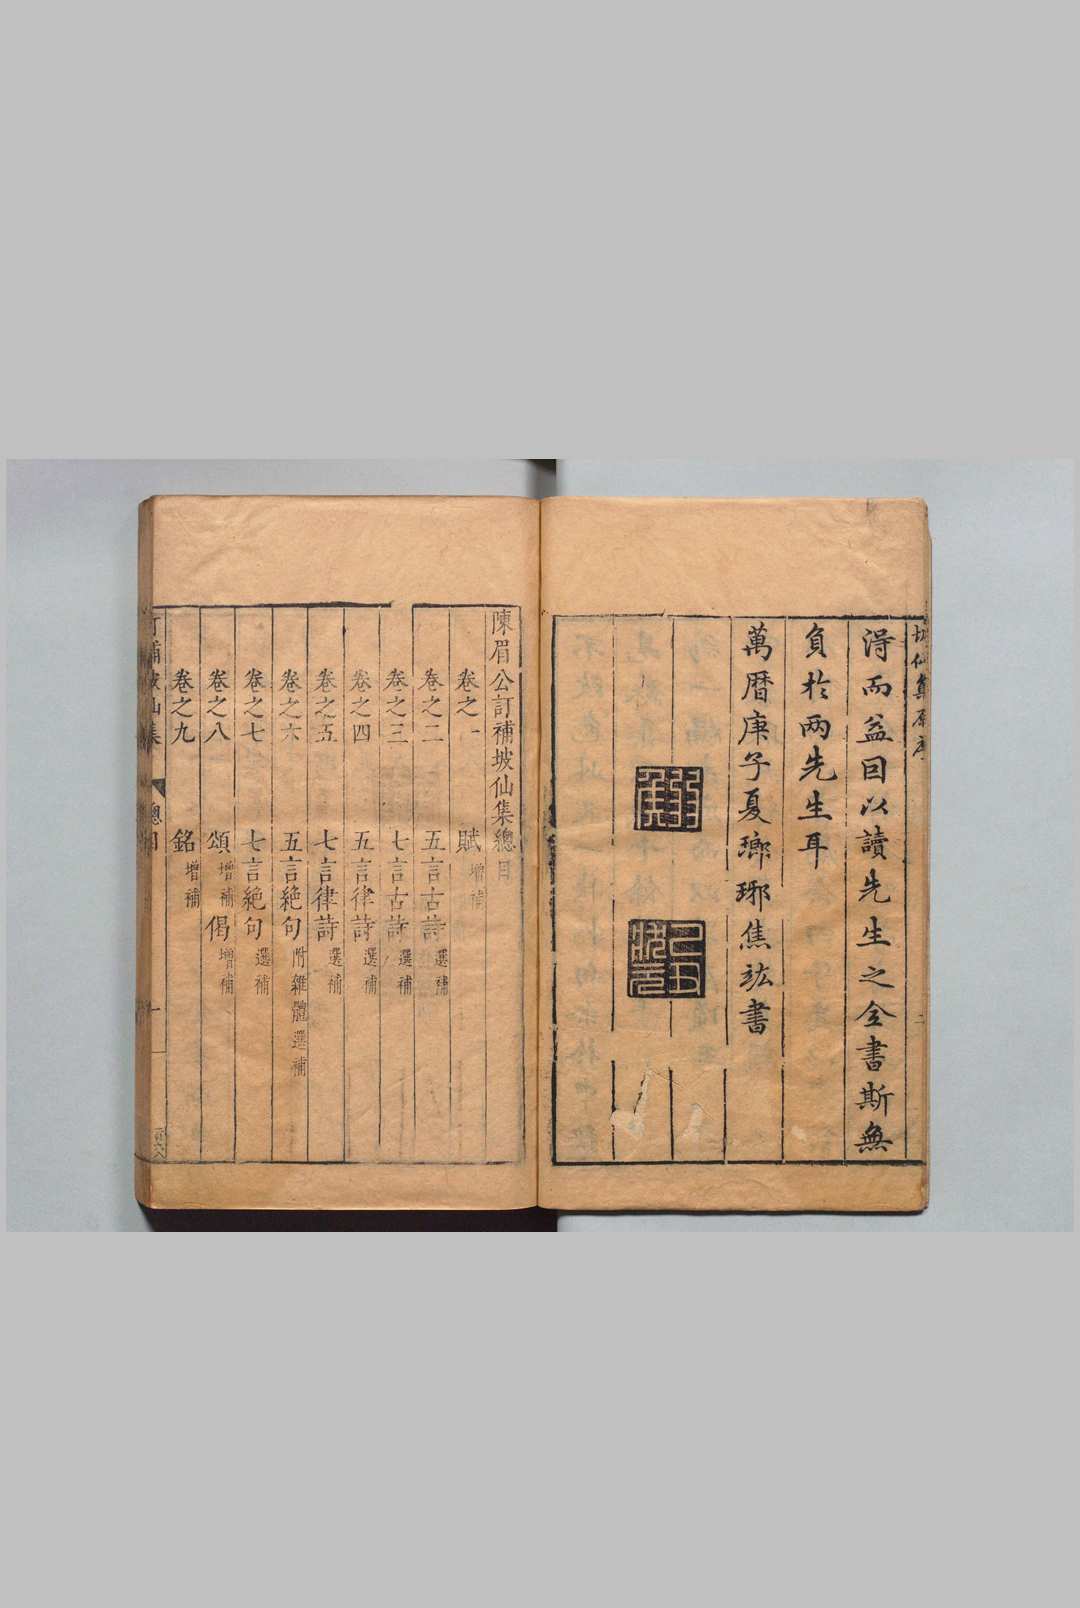 坡仙集原序
得而益因以讀先生之全書斯無
負於两先生耳
萬曆庚子夏瑯琊焦竑書
二
陳眉公訂補坡仙集總目
卷之一 賦增補
卷之二 五言古詩選補
卷之三 七言古詩選補
卷之四 五言律詩選補
卷之五 七言律詩選補
卷之六 五言絶句附雜體選補
卷之七 七言絶句選補
卷之八 頌增補 偈增補
卷之九 銘增補
訂補坡仙集 總目 一